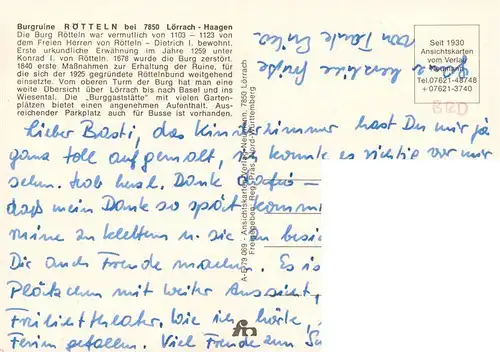 Burgruine RÖTTELN bei 7850 Lörrach - Haagen
Die Burg Rötteln war vermutlich von 1103 – 1123 von
dem Freien Herren von Rötteln - Dietrich I. bewohnt.
Erste urkundliche Erwähnung im Jahre 1259 unter
Konrad I. von Rötteln. 1678 wurde die Burg zerstört.
1840 erste Maßnahmen zur Erhaltung der Ruine, für
die sich der 1925 gegründete Röttelnbund weitgehend
einsetzte. Vom oberen Turm der Burg hat man eine
weite Übersicht über Lörrach bis nach Basel und ins
Wiesental. Die „Burggaststätte" mit vielen Garten-
plätzen bietet einen angenehmen Aufenthalt. Aus-
reichender Parkplatz auch für Busse ist vorhanden.
Seit 1930
Ansichtskarten
vom Verlag
Tel.07621-48748
+ 07621-3740
BRD
herzliche Grüße
von Tante
Lieber Basti, das Kinderzimmer hast Du mir ja
ganz toll aufgemalt, ich konnte es richtig vor mir
sehn. Hab herzl. Dank dafür –
daß mein Dank so spät kommt
zu klettern u. sie zu besi
Dir auch Freude machen. Es is
Plätzchen mit weiter Aussicht,
Freilichttheater. Wie ich hörte,
Ferien gefallen. Viel Freude zum
A-D79 069 - Ansichtskarten-Verlag 7850 Lörrach
Freigegeben Reg. Präs. Nord-Württemberg